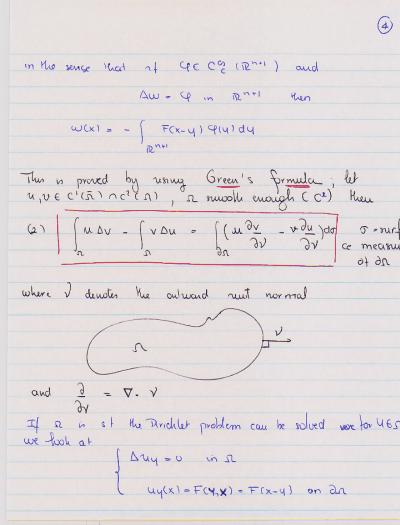 4
in the sense that if φ ∈ C_c^∞ (ℝⁿ⁺¹) and
Δw = φ in ℝⁿ⁺¹ then
w(x) = - ∫_{ℝⁿ⁺¹} F(x-y) φ(y) dy
This is proved by using Green's formula; let
u, v ∈ C¹(Ω̄) ∩ C²(Ω), Ω smooth enough (C²) then
(2) ∫_Ω u Δv - ∫_Ω v Δu = ∫_{∂Ω} (u ∂v/∂ν - v ∂u/∂ν) dσ σ = surfa
ce measure
of ∂Ω
where ν denotes the outward unit normal
Ω ν
and ∂/∂ν = ∇· ν
If Ω is st the Dirichlet problem can be solved for
we look at
{ Δu_y = 0 in Ω
u_y(x) = F(y,x) = F(x-y) on ∂Ω